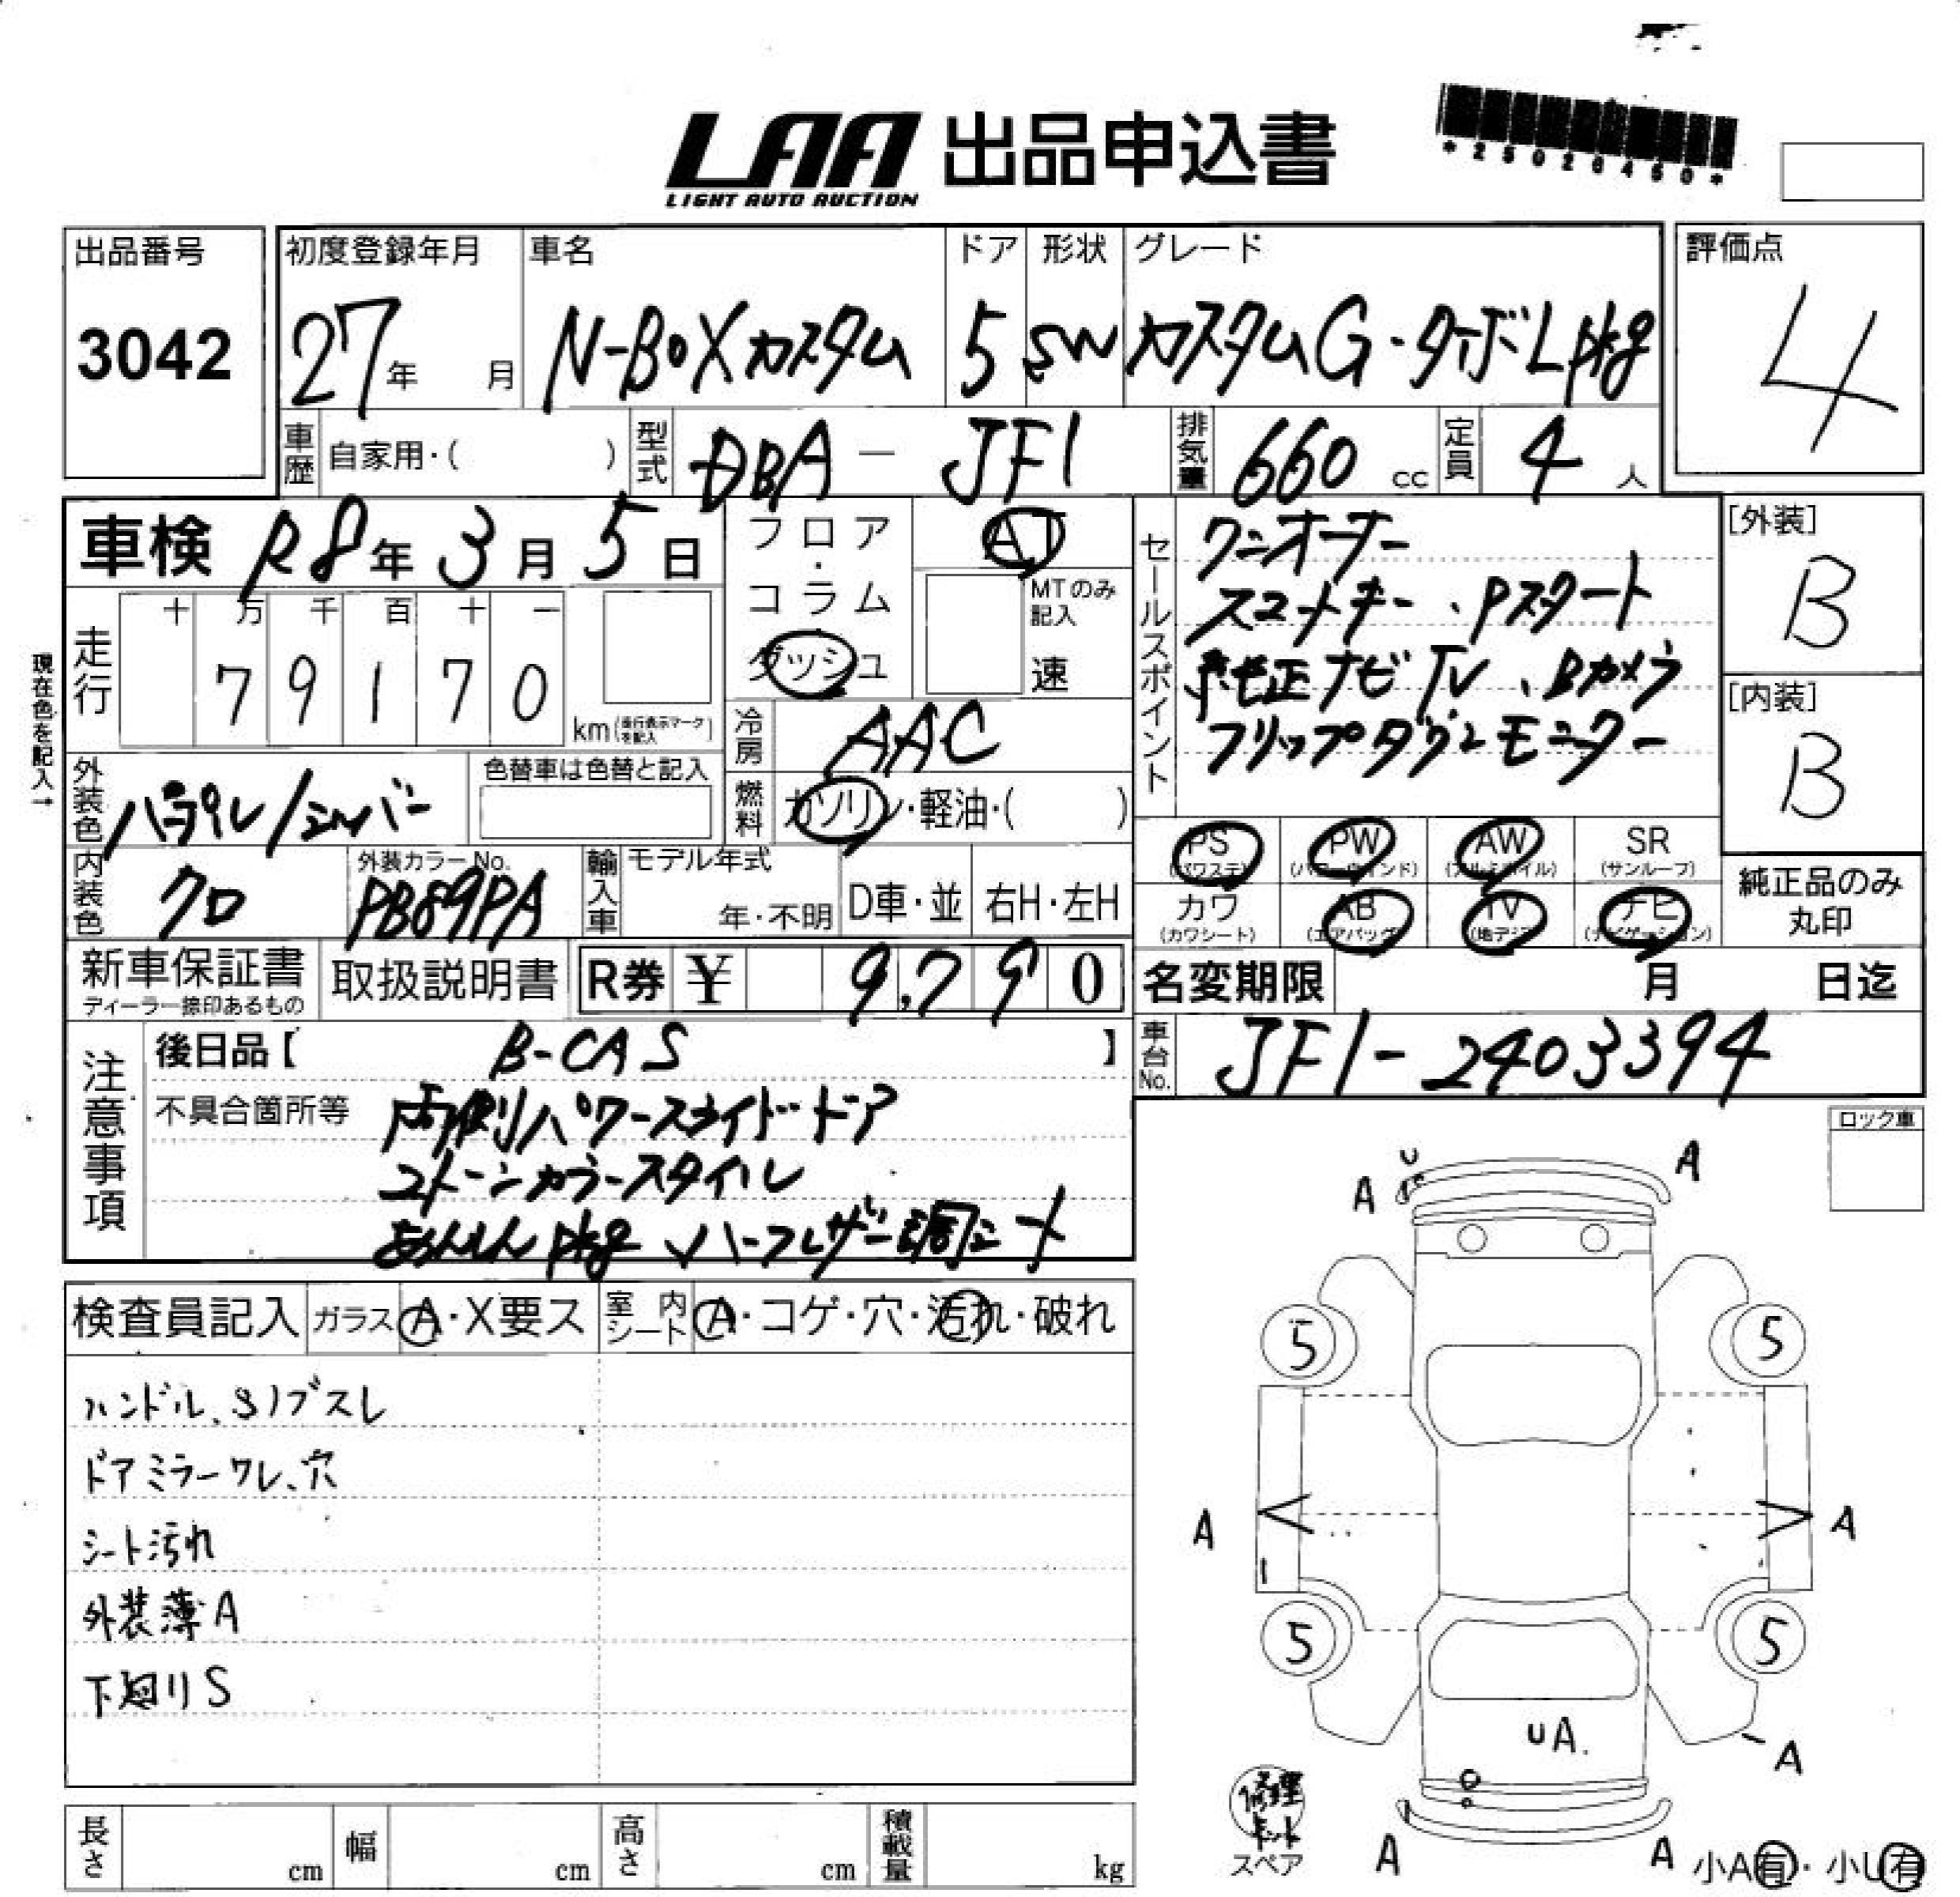 LAA 出品申込書
LIGHT AUTO AUCTION
*25020450*
出品番号 初度登録年月 車名 ドア 形状 グレード 評価点
3042 27年 月 N-BOXカスタム 5 SW カスタムG・ターボLpkg 4
車歴 自家用・( ) 型式 DBA-JF1 排気量 660 cc 定員 4 人
車検 R8年3月5日
フロア・コラム ダッシュ AT
MTのみ記入 速
セールスポイント
ワンオーナー
スマートキー、Pスタート
純正ナビTV、Bカメラ
フリップダウンモニター
[外装] B
[内装] B
現在色を記入→
走行 十 万 千 百 十 一
79170 km(走行表示マークを記入)
冷房 AAC
外装色 パープル/シルバー 色替車は色替と記入
燃料 ガソリン・軽油・( )
PS (パワステ) PW (パワーウインド) AW (アルミホイル) SR (サンルーフ)
カワ (カワシート) AB (エアバッグ) TV (地デジ) ナビ (ナビゲーション)
純正品のみ丸印
内装色 クロ 外装カラーNo. PB89PA 輸入車 モデル年式 年・不明 D車・並 右H・左H
新車保証書 ディーラー捺印あるもの 取扱説明書 R券 ¥ 9,790
名変期限 月 日迄
車台No. JF1-2403394
注意事項
後日品【 B-CAS 】
不具合箇所等 両側パワースライドドア
2トーンカラースタイル
あんしんpkg、ハーフレザー調シート
ロック車
検査員記入 ガラス A・X要ス 室内シート A・コゲ・穴・汚れ・破れ
ハンドル、S/ブスレ
ドアミラーワレ、穴
シート汚れ
外装薄A
下廻りS
U A
A
5 5
A A
5 5
UA.
A
修理キット
スペア
A A
小A有・小U有
長さ cm 幅 cm 高さ cm 積載量 kg